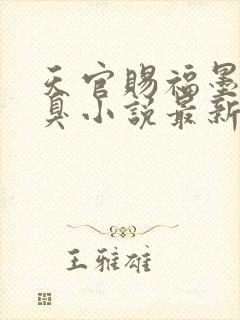 天官赐福墨
臭小说最新
王雅雄